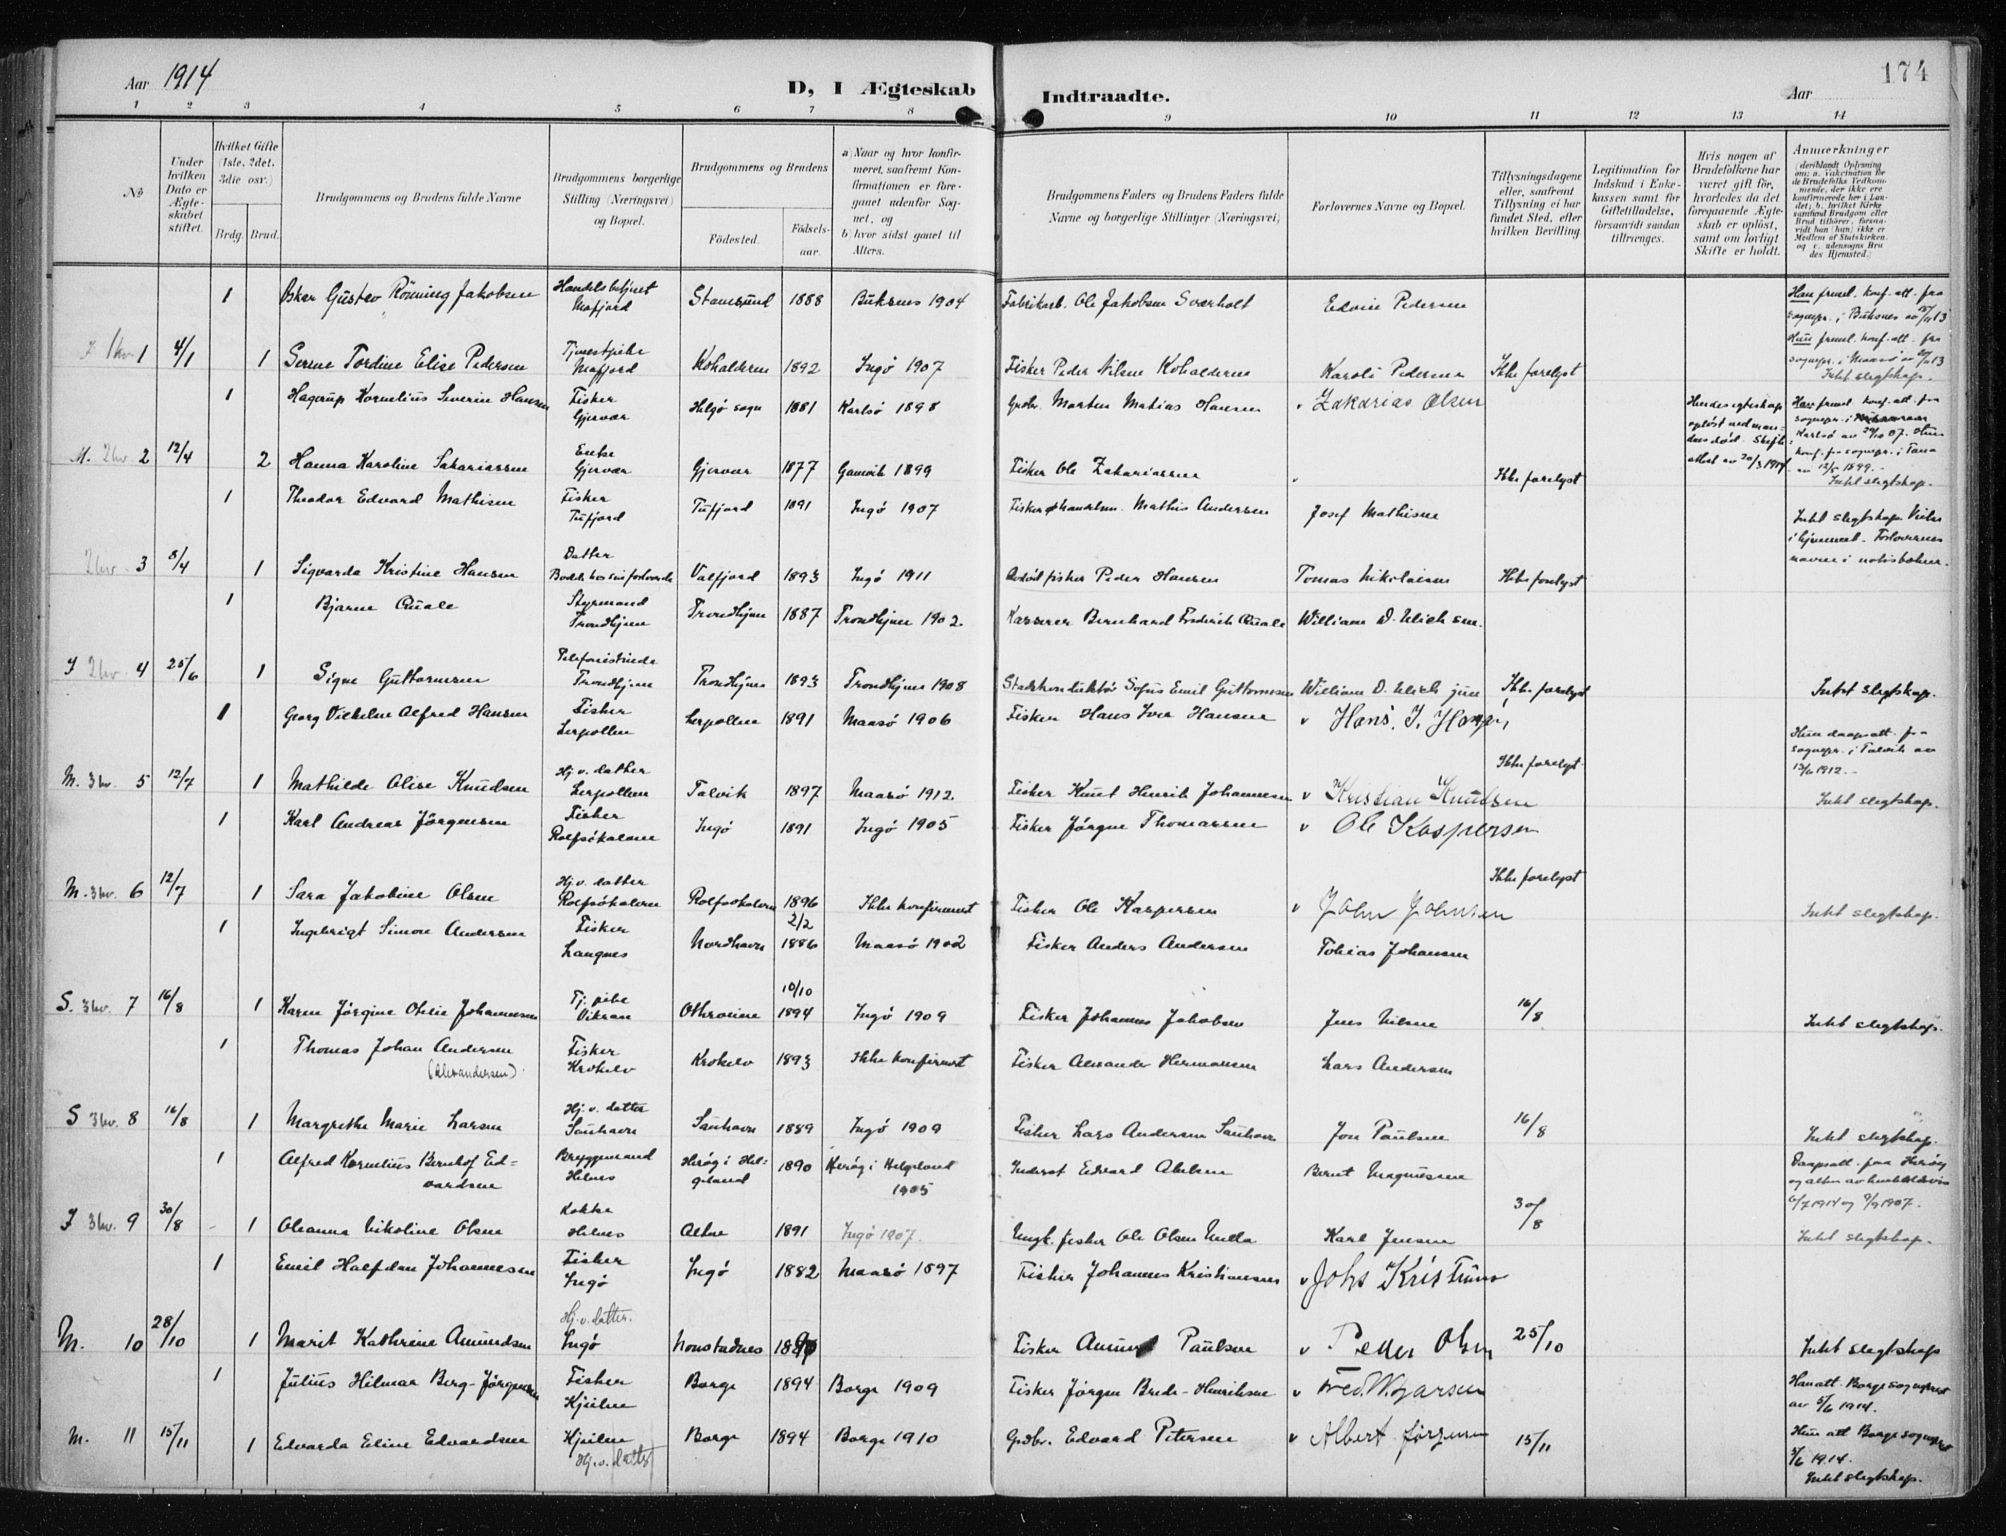 Aar 1914
D, I Ægteskab Indtraadte.
174
Aar
1 2 3 4 5 6 7 8 9 10 11 12 13 14
No
Under hvilken Dato er Ægteskabet stiftet.
Hvilket Gifte (1ste, 2det, 3die osv.)
Brdg. Brud.
Brudgommens og Brudens fulde Navne
Brudgommens borgerlige Stilling (Næringsvei) og Bopæl.
Brudgommens og Brudens
Födested. Födselsaar.
a) Naar og hvor konfirmeret, saafremt Konfirmationen er foregaaet udenfor Sognet, og
b) hvor sidst gaaet til Alters.
Brudgommens Faders og Brudens Faders fulde Navne og borgerlige Stillinger (Næringsvei)
Forlovernes Navne og Bopæl.
Tillysningsdagene eller, saafremt Tillysning ei har fundet Sted, efter hvilken Bevilling
Legitimation for Indskud i Enkekassen samt for Giftetilladelse, forsaavidt saadan tiltrænges.
Hvis nogen af Brudefolkene har været gift för, hvorledes da det foregaaende Ægteskab er oplöst, samt om lovligt Skifte er holdt.
Anmærkninger
1 Oskar Gustav Rönning Jakobsen Handelsbetjent Mafjord Stamsund 1888 Buksnes 1904 Fabrikarb. Ole Jakobsen Sværholt Edvin Pedersen Han freml. konf. att. fra sognepr. i Buksnes
1 4/1 1 Serine Tordine Elise Pedersen Tjenestpike Mafjord Koholderen 1892 Ingö 1907 Fisker Peder Nilsen Koholderen Karoli Pedersen Ikke forelyst Hun freml. konf. att. fra sognepr. i Maasö Intet slegtskap.
1 Hagerup Kornelius Severin Hansen Fisker Gjesvær Helgö sogn 1881 Karlsö 1898 Grdbr. Morten Matias Hansen Zakarias Olsen Hendes egteskap oplöst ved mandens död. Skifteattest av 20/3 1914 Han freml. konf. att. fra sognepr. i Karlsö
M. 2kv. 2 12/4 2 Hanna Karoline Sakariassen Enke Gjesvær Gjesvær 1877 Gamvik 1899 Fisker Ole Zakariassen Ikke forelyst Hun konf. fra sognepr. i Tana av 12/5 1899. Intet slegtskap.
1 Theodor Edvard Mathisen Fisker Tufjord Tufjord 1891 Ingö 1907 Fisker Mathis Andersen Josef Mathisen Intet slegtskap. Viet i hjemmet. Forlovernes navne i notisboken.
2kv. 3 8/4 1 Sigvarda Kristine Hansen Datter Valfjord 1893 Ingö 1911 fisker Peder Hansen Tomas Nikolaisen Ikke forelyst
1 Bjarne Quale Styrmand Trondhjem Trondhjem 1887 Trondhjem 1902 Kasserer Bernhard Frederik Quale William D. Ulichsen.
J 2kv. 4 25/6 1 Signe Guttormsen Telefonistinde Trondhjem Trondhjem 1893 Trondhjem 1908 Stadskonduktör Sofus Emil Guttormsen William D. Ulich jun Ikke forelyst Intet slegtskap.
1 Georg Vilhelm Alfred Hansen Fisker Lerpollen Lerpollen 1891 Maasö 1906 Fisker Hans Iver Hansen Hans. I. Hansen
M. 3kv. 5 12/7 1 Mathilde Olise Knudsen Hj.v. datter Lerpollen Talvik 1897 Maasö 1912. Fisker Knut Henrik Johannesen Kristian Knudsen Ikke forelyst. Hun daapsatt. fra sognepr. i Talvik av 13/6 1912. Intet slegtskap.
1 Karl Andreas Jörgensen Fisker Rolfsöhalvoen Ingö 1891 Ingö 1905 Fisker Jörgen Thomassen Ole Kaspersen
M. 3kv. 6 12/7 1 Sara Jakobine Olsen Hj.v. datter Rolfsöhavn Rolfsöhavn 1896 Ikke konfirmert Fisker Ole Kaspersen John Johnsen Ikke forelyst Intet slegtskap.
1 Ingebrigt Simon Andersen Fisker Langnes Nordhavn 2/2 1886 Maasö 1902 Fisker Anders Andersen Tobias Johansen
S. 3kv. 7 16/8 1 Karen Jörgine Otelie Johannesen Tj. pike Vikran 10/10 1894 Ingö 1909 Fisker Johannes Jakobsen Jens Nilsen 16/8 Intet slegtskap.
1 Thomas Johan Andersen (Alexandersen) Fisker Krokelv Krokelv 1893 Ikke konfirmert Fisker Alexander Hermansen Lars Andersen
S 3kv. 8 16/8 1 Margrethe Marie Larsen Hj.v. datter Sauhavn Sauhavn 1889 Ingö 1909 Fisker Lars Andersen Sauhavn Jon Paulsen 16/8 Intet slegtskap.
1 Alfred Kornelius Bernhof Edvardsen Bryggemand Helnes Heröy i Helgeland 1890 Heröy i Helgeland 1905 Inderst Edvard Bernt Magnussen Daapsatt. fra Heröy
J 3kv. 9 30/8 1 Oleanna Nikoline Olsen Kokke Helnes Alten 1891 Ingö 1907. Ungk. fisker Ole Olsen Karl Jensen 30/8 Intet slegtskap.
1 Emil Halfdan Johannesen Fisker Ingö Ingö 1882 Maasö 1897 Fisker Johannes Kristiansen Johs Kristians
M. 10 28/10 1 Marit Kathrine Amundsen Hj.v. datter. Ingö Fisker Amund Paulsen Peder Olsen 25/10 Intet slegtskap
1 Julius Hilmar Berg-Jörgensen Fisker Kjeilen Borge 1894 Borge 1909 Fisker Jörgen Brede-Henriksen Han att. Borge sogneprest av 5/6 1914.
M. 11 15/11 1 Edvarda Eline Edvardsen Kjeilen Hj.v. datter Borge 1894 Borge 1910 Grdbr. Edvard Petersen Albert Jörgensen 15/11 Hun att Borge sogneprest 3/6 1914. Intet slegtskap.